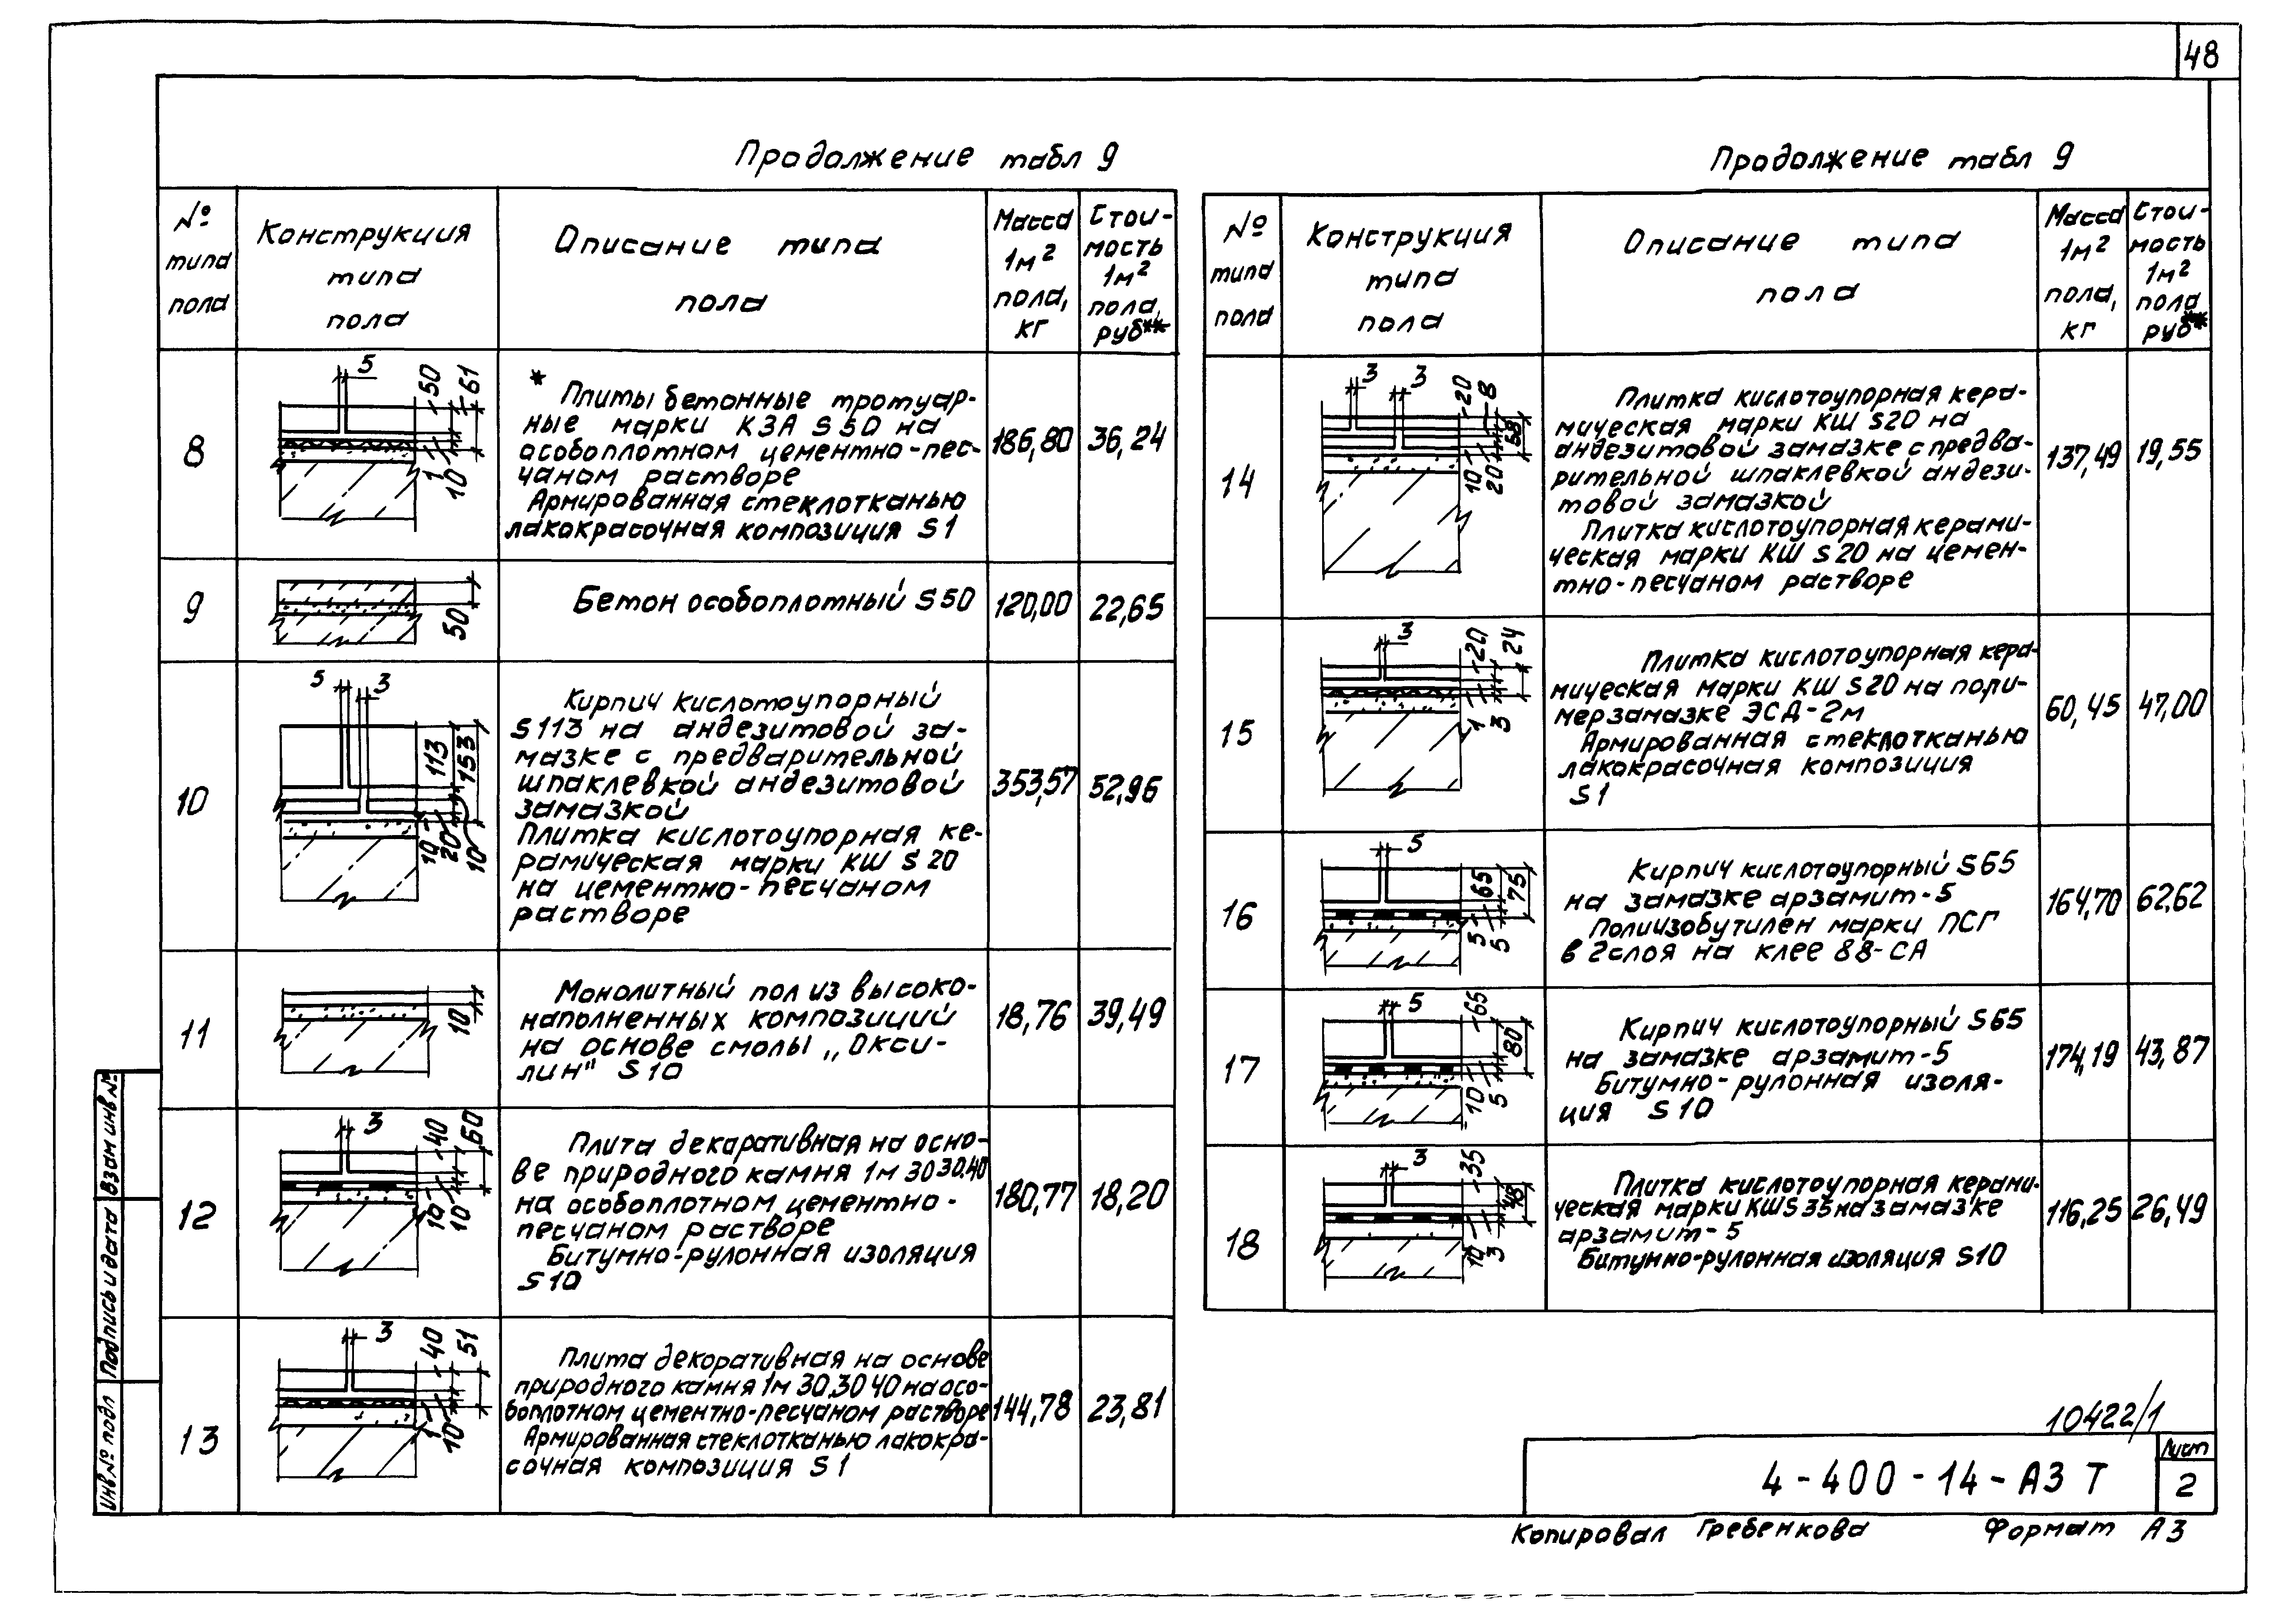 48
Продолжение табл 9
№ типа пола
Конструкция типа пола
Описание типа пола
Масса 1м² пола, кг
Стои-мость 1м² пола, руб**
8
5 50 61 1 10
* Плиты бетонные тротуар-
ные марки К3А S50 на
особоплотном цементно-пес-
чаном растворе
Армированная стеклотканью
лакокрасочная композиция S1
186,80
36,24
9
50
Бетон особоплотный S50
120,00
22,65
10
5 3 113 153 10 20 10
Кирпич кислотоупорный
S113 на андезитовой за-
мазке с предварительной
шпаклевкой андезитовой
замазкой
Плитка кислотоупорная ке-
рамическая марки КШ S20
на цементно-песчаном
растворе
353,57
52,96
11
10
Монолитный пол из высоко-
наполненных композиций
на основе смолы „Окси-
лин" S10
18,76
39,49
12
3 40 60 10 10
Плита декаративная на осно-
ве природного камня 1м 30 30.40
на особоплотном цементно-
песчаном растворе
Битумно-рулонная изоляция
S10
180,77
18,20
13
3 40 51 1 10
Плита декоративная на основе
природного камня 1м 30.30 40 на осо-
боплотном цементно-песчаном растворе
Армированная стеклотканью лакокра-
сочная композиция S1
144,78
23,81
Продолжение табл 9
№ типа пола
Конструкция типа пола
Описание типа пола
Масса 1м² пола, кг
Стои-мость 1м² пола руб**
14
3 3 20 8 58 10 20
Плитка кислотоупорная кера-
мическая марки КШ S20 на
андезитовой замазке с предва-
рительной шпаклевкой андези-
товой замазкой
Плитка кислотоупорная керами-
ческая марки КШ S20 на цемен-
тно-песчаном растворе
137,49
19,55
15
3 20 24 1 3
Плитка кислотоупорная кера-
мическая марки КШ S20 на поли-
мерзамазке ЭСД-2м
Армированная стеклотканью
лакокрасочная композиция
S1
60,45
47,00
16
5 65 75 5 5
Кирпич кислотоупорный S65
на замазке арзамит-5
Полиизобутилен марки ПСГ
в 2 слоя на клее 88-СА
164,70
62,62
17
5 65 80 10 5
Кирпич кислотоупорный S65
на замазке арзамит-5
Битумно-рулонная изоля-
ция S10
174,19
43,87
18
3 35 48 10 3
Плитка кислотоупорная керами-
ческая марки КШ S35 на замазке
арзамит-5
Битумно-рулонная изоляция S10
116,25
26,49
Взам инв №
Подпись и дата
Инв № подл
10422/1
4-400-14-А3 Т
Лист
2
Копировал Гребенкова
Формат А3